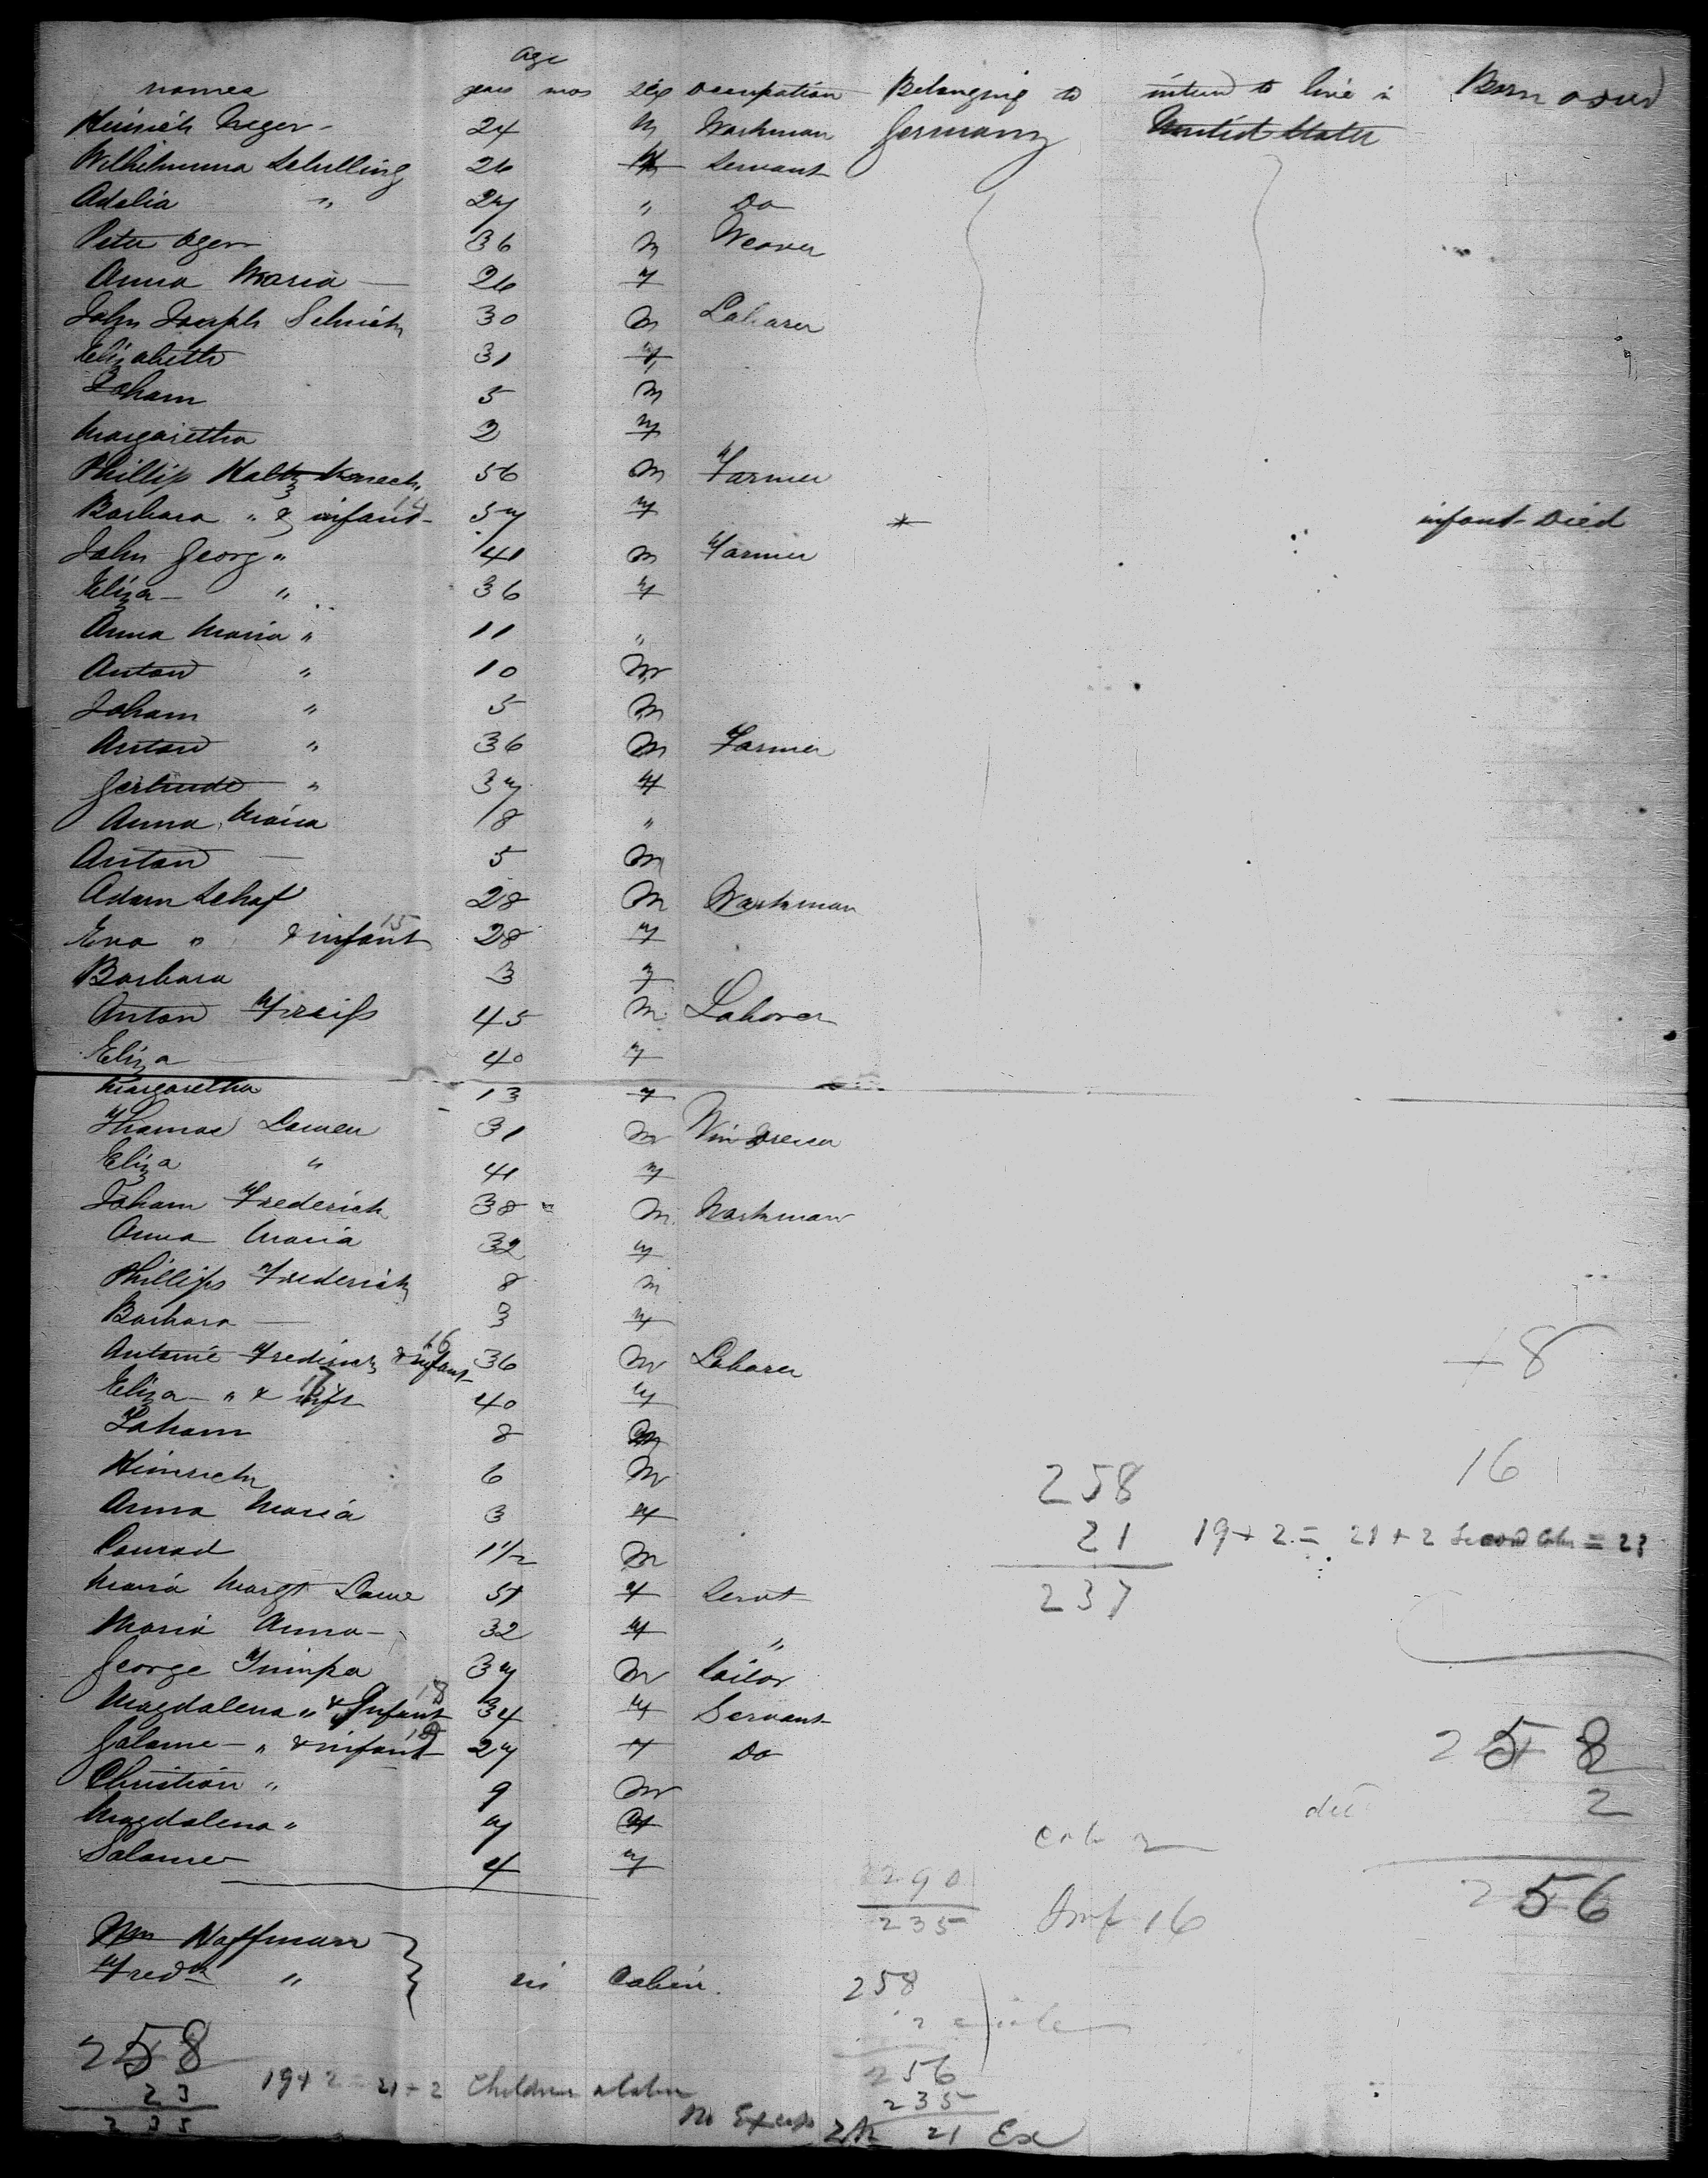 age
names years mos sex occupation Belonging to intend to live in Born & died
Heinrich 24 M Workman Germany United States
Wilhelmina Schilling 26 F Servant
Adalia " 27 " Do
Peter Oger 36 M Weaver
Anna Maria — 26 F
John Joseph 30 M Laborer
Elizabeth 31 F
Joham 5 M
Margaretha 2 F
Phillip 56 M Farmer
Barbara " & infant 14 57 F * infant Died
John Georg " 41 M Farmer
Eliza — " 36 F
Anna Maria " 11 "
Anton " 10 M
Joham " 5 M
Anton " 36 M Farmer
Gertrude " 37 F
Anna Maria 8 "
Anton — 5 M
Adam Schaf 28 M Workman
Eva " & infant 15 28 F
Barbara 3 F
Anton 45 M Laborer
Eliza 40 F
Margaretha 13 F
Thomas 31 M Vin Dresser
Eliza " 41 F
Joham Frederick 38 " M Workman
Anna Maria 32 F
Phillips Frederick 8 M
Barbara — 3 F
Antonie Frederick & infant 16 36 M Laborer
Eliza — " & inft 17 40 F
Joham 8 M
Heinrich 6 M
Anna Maria 3 F
Conrad 1 1/2 M
Maria Margt 51 F Servt
Maria Anna — 32 F "
George 37 M tailor
Magdalena " & Infant 18 34 F Servant
Salame — " & infant 19 27 F Do
Christian " 9 M
Magdalena " 7 F
Salame 4 F
Wm Hoffman
Fredk " } in Cabin.
+8
16
258
21 19 + 2 = 21 + 2 = 23
237
258
2
256
290
235
Inf 16
258
2
256
235
21 Ex
258
23
235
19 + 2 = 21 + 2 Children